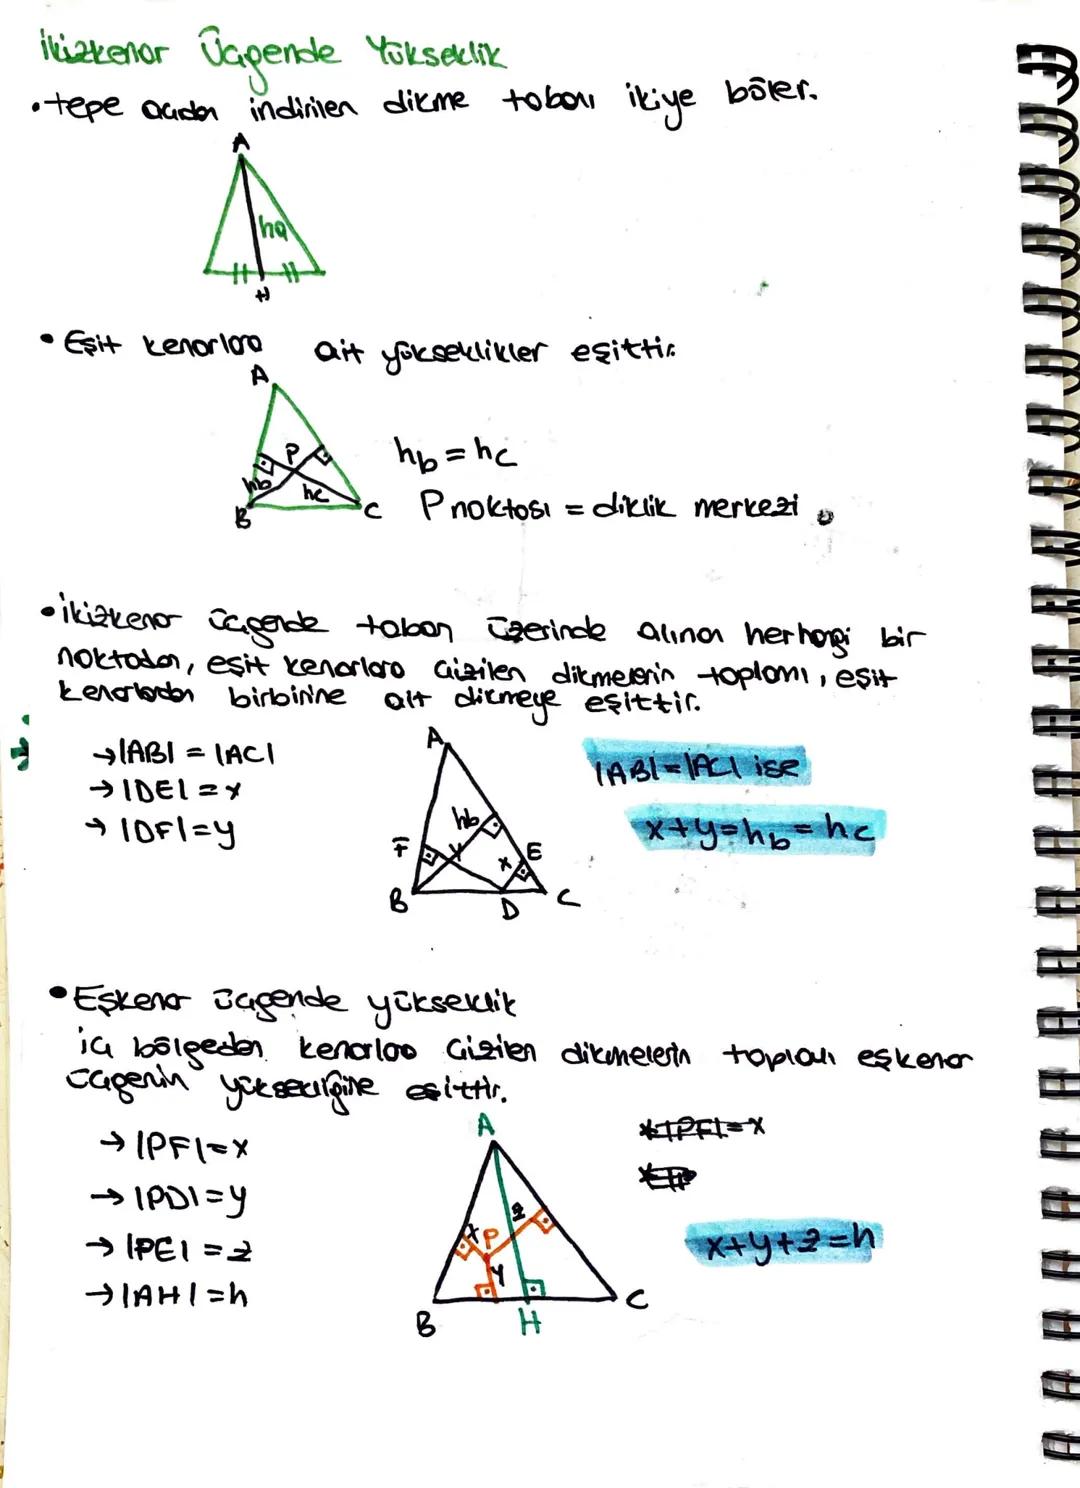 İkizkenar Üçgende Yükseklik
• tepe açıdan indirilen dikme tabanı ikiye böler.
A
ha
H
• Eşit kenarlara ait yükseklikler eşittir.
A
P
hb
hc
B
C
hb = hc
P noktası = diklik merkezi
• İkizkenar üçgende taban üzerinde alınan herhangi bir
noktadan, eşit kenarlara çizilen dikmelerin toplamı, eşit
kenarlardan birbirine ait dikmeye eşittir.
→ |AB| = |AC|
→ |DE| = x
→ |DF| = y
A
hb
F
y
x
E
B
D
C
|AB| = |AC| ise
x+y=hb=hc
• Eşkenar üçgende yükseklik
iç bölgeden kenarlara çizilen dikmelerin toplamı eşkenar
üçgenin yüksekliğine eşittir.
→ |PF| = x
→ |PD| = y
→ |PE| = z
→ |AH| = h
A
x
P
z
y
B
H
C
* |PF| = x
x+y+z=h